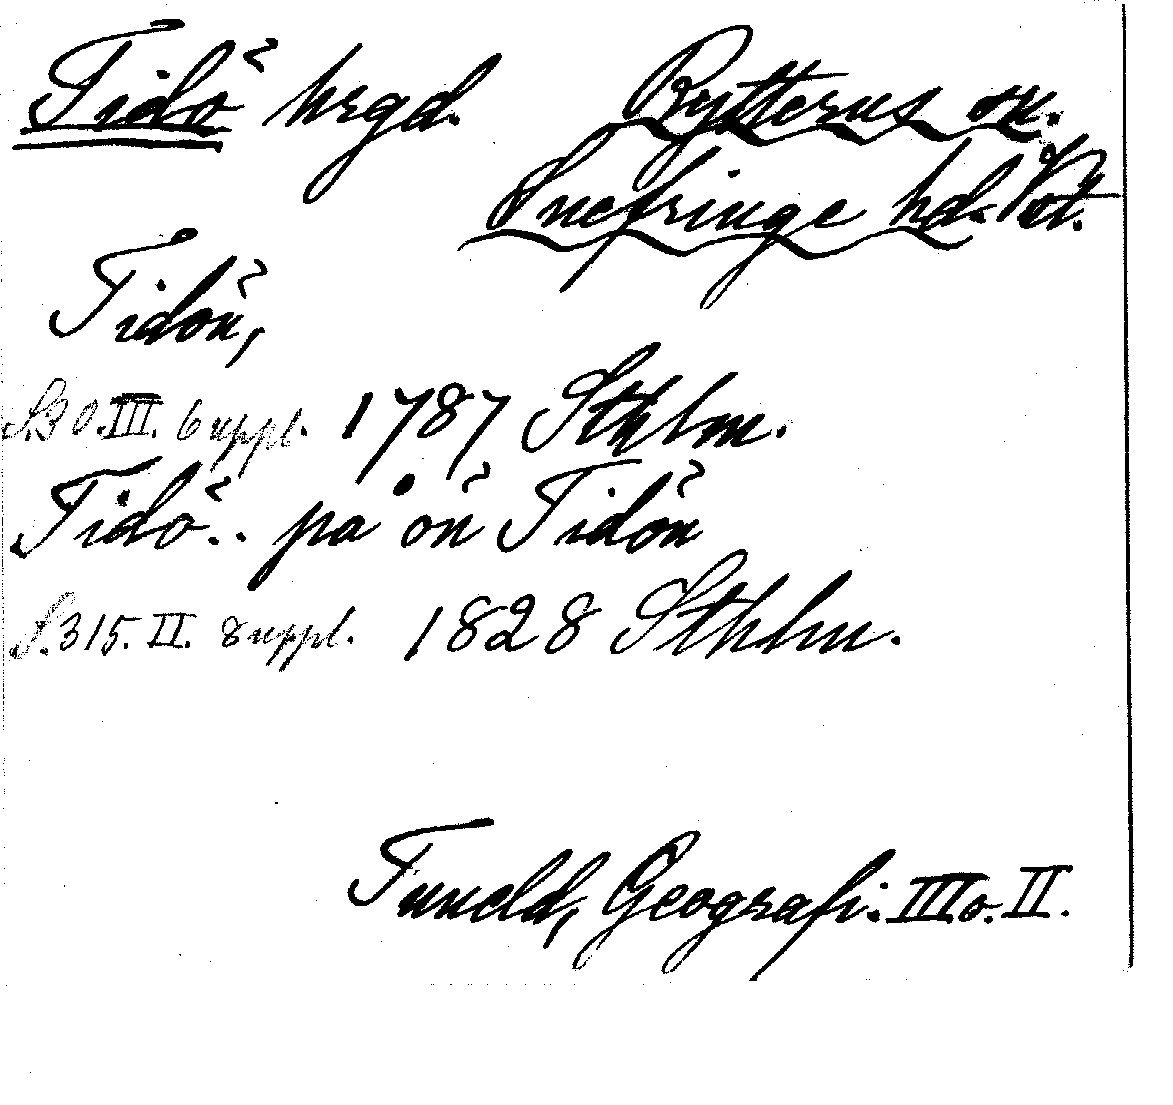 Tidö hrgd. Rytterns sn.
Snefringe hd. Västl.
Tidön,
S. 30. III. 6 uppl. 1787 Sthlm.
Tidö .. på ön Tidön
S. 315. II. 8 uppl. 1828 Sthlm.
Tuneld, Geografi. III o. II.